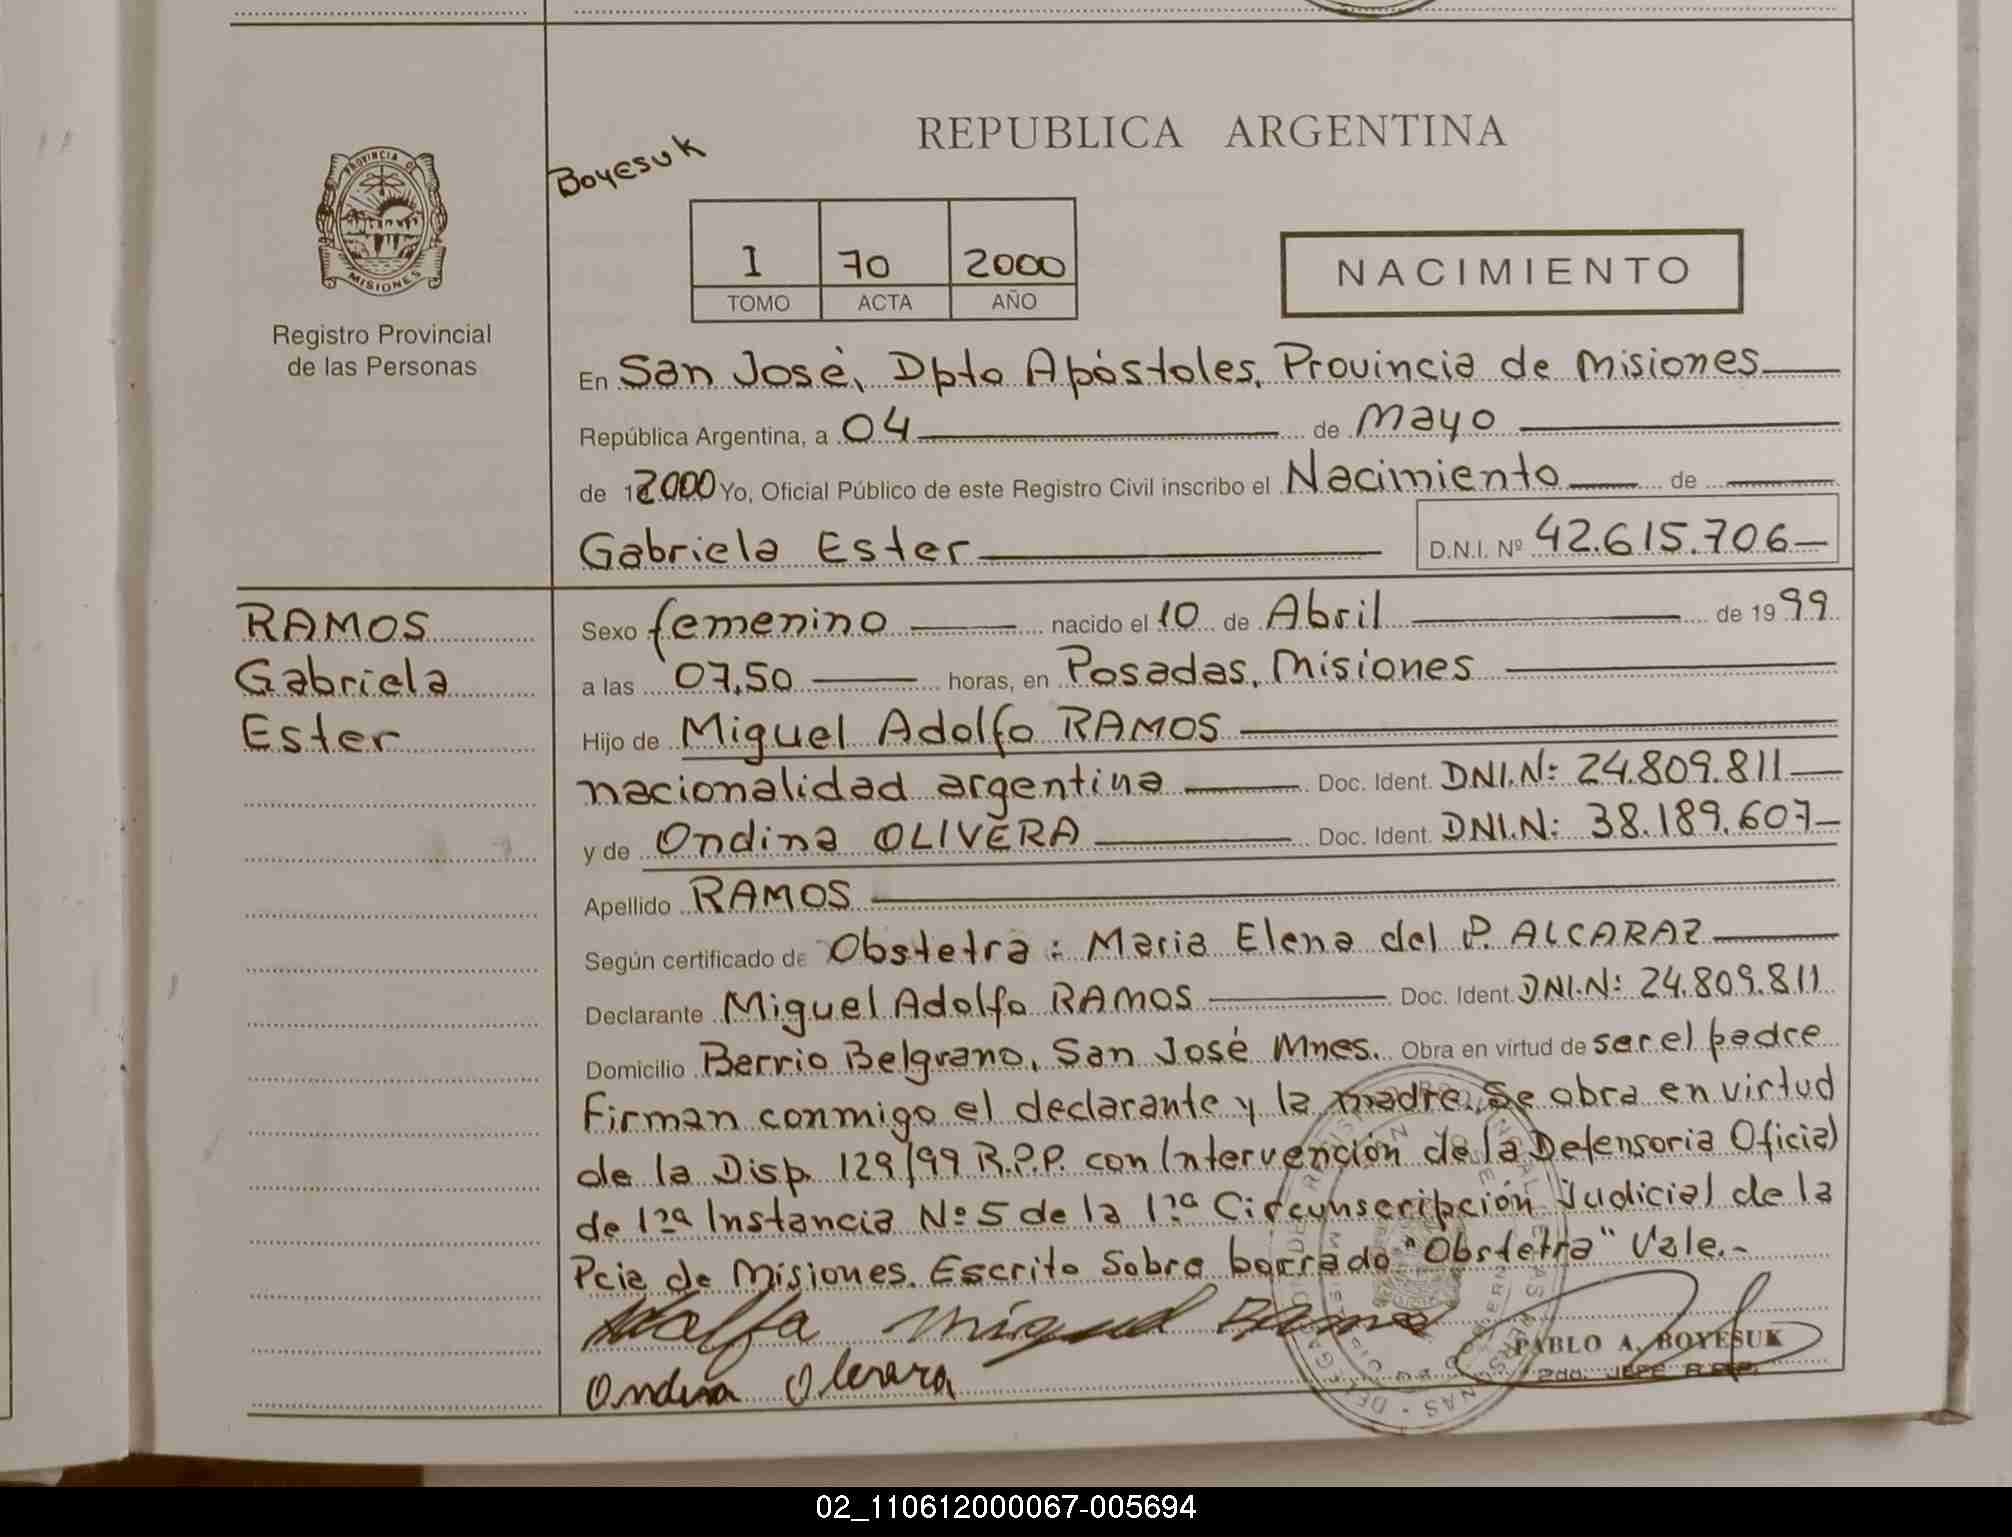 REPUBLICA ARGENTINA
Boyesuk
PROVINCIA DE
MISIONES
Registro Provincial
de las Personas
I 70 2000
TOMO ACTA AÑO
NACIMIENTO
En San José, Dpto Apóstoles, Provincia de Misiones
República Argentina, a 04 de Mayo
de 2000 Yo, Oficial Público de este Registro Civil inscribo el Nacimiento de
Gabriela Ester D.N.I. Nº 42.615.706
RAMOS
Gabriela
Ester
Sexo femenino nacido el 10 de Abril de 1999
a las 07,50 horas, en Posadas, Misiones
Hijo de Miguel Adolfo RAMOS
nacionalidad argentina Doc. Ident. DNI.N: 24.809.811
y de Ondina OLIVERA Doc. Ident. DNI.N: 38.189.607
Apellido RAMOS
Según certificado de Obstetra: Maria Elena del P. ALCARAZ
Declarante Miguel Adolfo RAMOS Doc. Ident. DNI.N: 24.809.811
Domicilio Berrio Belgrano, San José Mnes. Obra en virtud de ser el padre
Firman conmigo el declarante y la madre. Se obra en virtud
de la Disp. 129/99 R.P.P. con Intervención de la Defensoria Oficial
de 1ra Instancia Nº 5 de la 1ra Circunscripción Judicial de la
Pcia de Misiones. Escrito Sobre borrado "Obstetra" Vale.-
Adolfo Miguel Ramos
Ondina Olivera
PABLO A. BOYESUK
2do. JEFE R.P.P.
02_110612000067-005694